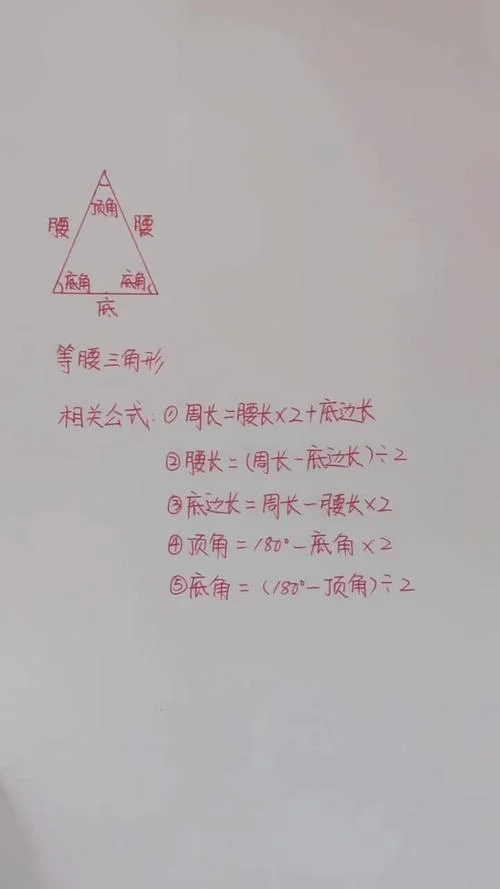 顶角
腰 腰
底角 底角
底
等腰三角形
相关公式:①周长=腰长×2+底边长
②腰长=(周长-底边长)÷2
③底边长=周长-腰长×2
④顶角=180°-底角×2
⑤底角=(180°-顶角)÷2